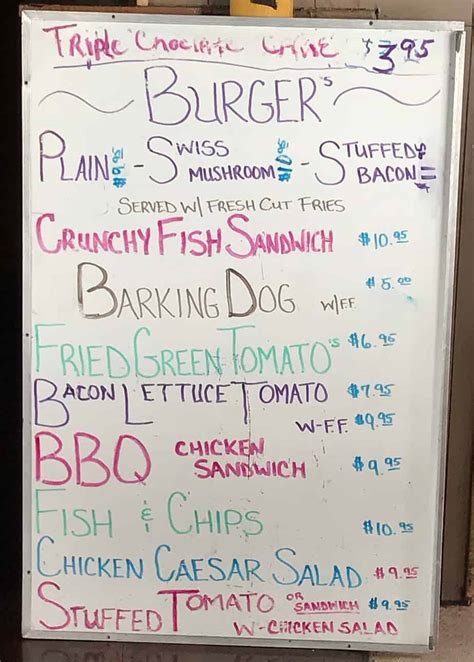 Triple Choclate Cake $3.95
BURGER's
PLAIN - SWISS MUSHROOM - STUFFED BACON
SERVED W/ FRESH CUT FRIES
CRUNCHY FISH SANDWICH $10.95
BARKING DOG W/FF $5.00
FRIED GREEN TOMATO'S $6.95
BACON LETTUCE TOMATO $7.95
W-F.F. $9.95
BBQ CHICKEN SANDWICH $9.95
FISH & CHIPS $10.95
CHICKEN CAESAR SALAD $9.95
STUFFED TOMATO OR SANDWICH $9.95
W-CHICKEN SALAD